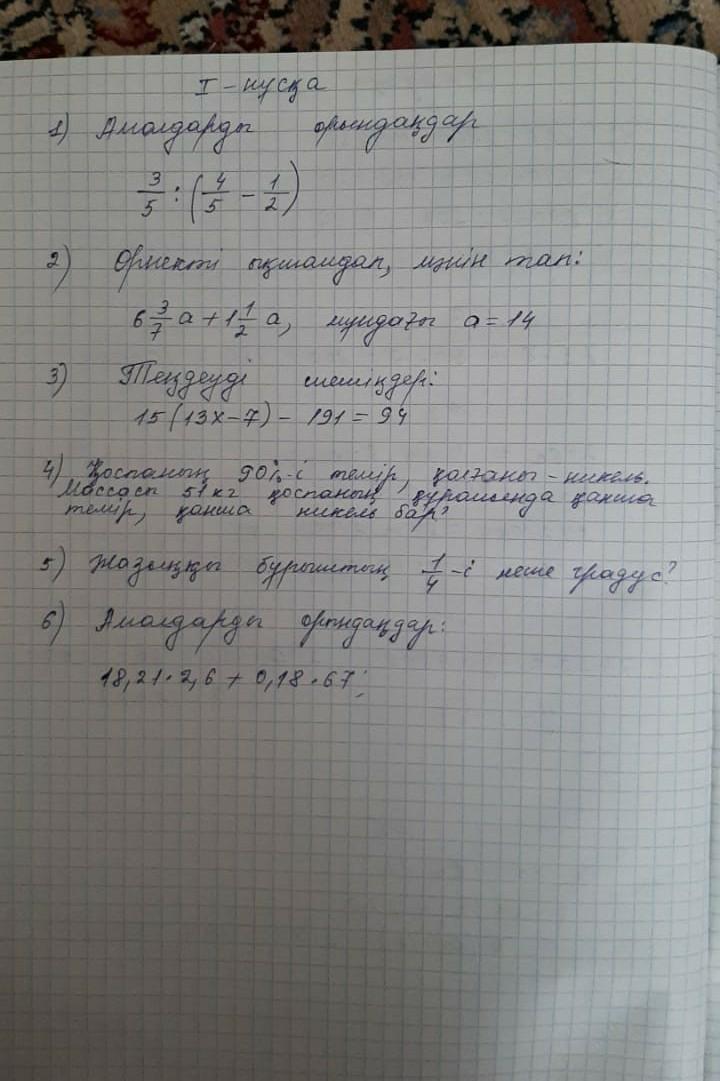 I - нұсқа
1) Амалдарды орындаңдар
3/5 : (4/5 - 1/2)
2) Өрнекті ықшамдап, мәнін тап:
6 3/7 a + 1 1/2 a, мұндағы a = 14
3) Теңдеуді шешіңдер:
15(13x-7) - 191 = 94
4) Қоспаның 90%-і темір, қалғаны - никель.
Массасы 51 кг қоспаның құрамында қанша
темір, қанша никель бар?
5) Жазыңқы бұрыштың 1/4-і неше градус?
6) Амалдарды орындаңдар:
18,21·2,6 + 0,18·67;